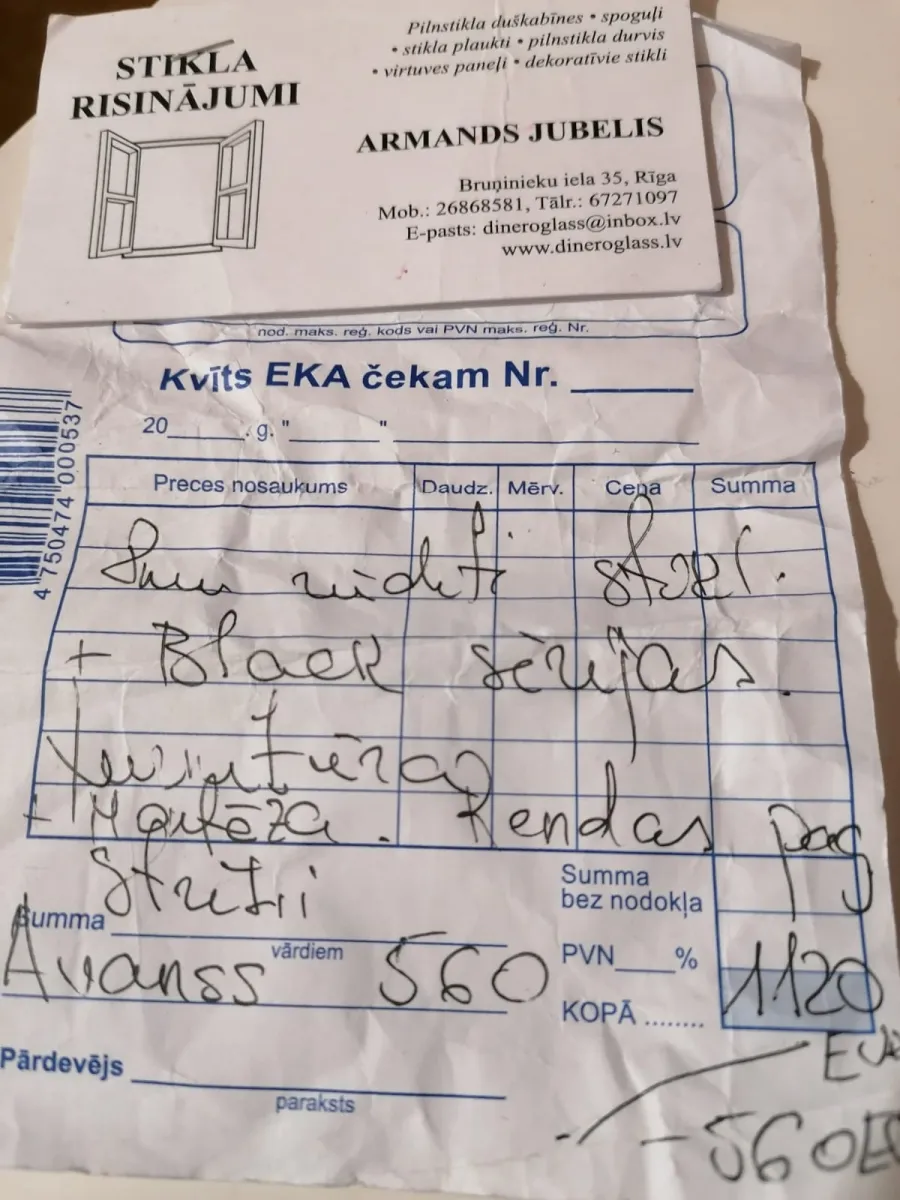 STIKLA
RISINĀJUMI
Pilnstikla duškabīnes • spoguļi
• stikla plaukti • pilnstikla durvis
• virtuves paneļi • dekoratīvie stikli
ARMANDS JUBELIS
Bruņinieku iela 35, Rīga
Mob.: 26868581, Tālr.: 67271097
E-pasts: dineroglass@inbox.lv
www.dineroglass.lv
nod. maks. reģ. kods vai PVN maks. reģ. Nr.
Kvīts EKA čekam Nr.
20 . g. " "
4 750474 000537
Preces nosaukums Daudz. Mērv. Cena Summa
rūdīti
+ Black sērijas
+ Montāža. Rendas pag
Summa bez nodokļa
Summa
vārdiem
Avanss 560
PVN %
KOPĀ ........ 1120
Pārdevējs
paraksts
- 560